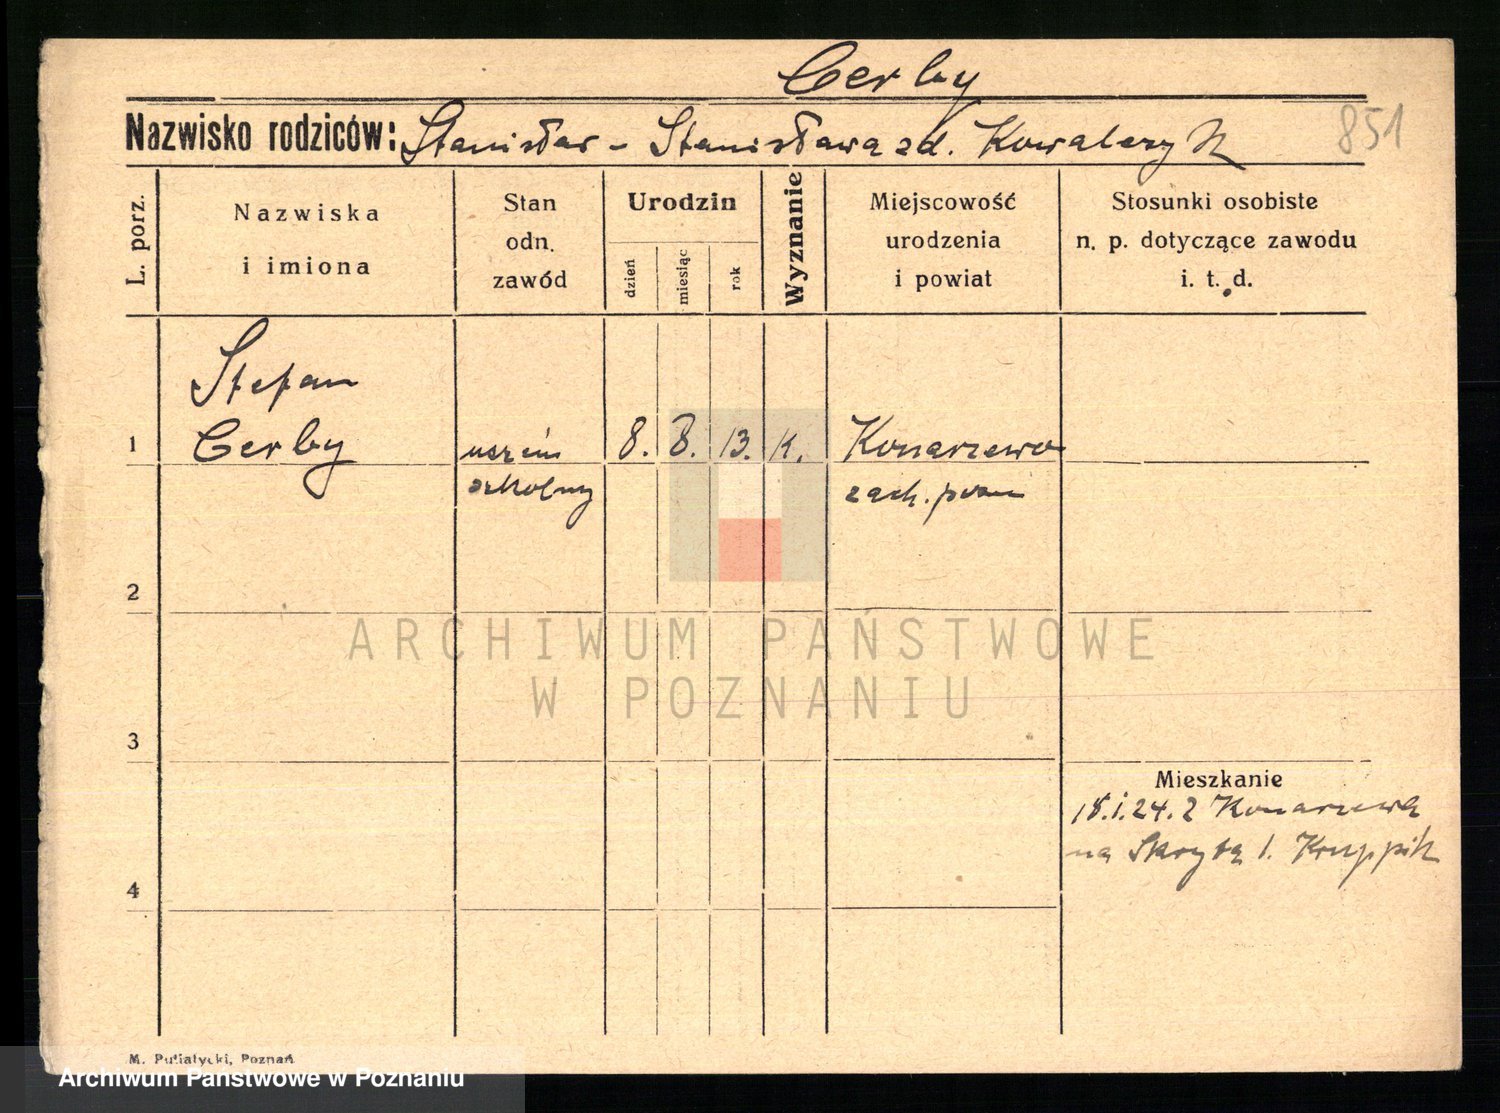 Cerby
Nazwisko rodziców: Stanisław - Stanisława zd. Kowalczyk
851
L. porz.
Nazwiska
i imiona
Stan
odn.
zawód
Urodzin
dzień
miesiąc
rok
Wyznanie
Miejscowość
urodzenia
i powiat
Stosunki osobiste
n. p. dotyczące zawodu
i. t. d.
Stefan
1 Cerby uczeń 8. 8. 13. k. Konarzewo
szkolny zach. pozn
2
ARCHIWUM PAŃSTWOWE
W POZNANIU
3
Mieszkanie
18.1.24. z Konarzewa
na Skrytą 1.
4
M. Putiatycki, Poznań
Archiwum Państwowe w Poznaniu